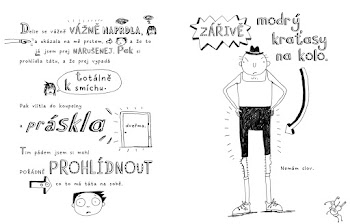 Delie se vážně VÁŽNĚ NAPRDLA,
a ukázala na mě prstem, a že to
já jsem prej NARUŠENEJ. Pak si
prohlídla tátu, a že prej vypadá
totálně
k smíchu.
Pak vlítla do koupelny
a práskla dveřma.
Tím pádem jsem si mohl
pořádně PROHLÍDNOUT
co to má táta na sobě.
ZÁŘIVĚ
modrý
kraťasy
na kolo.
Nemám slov.